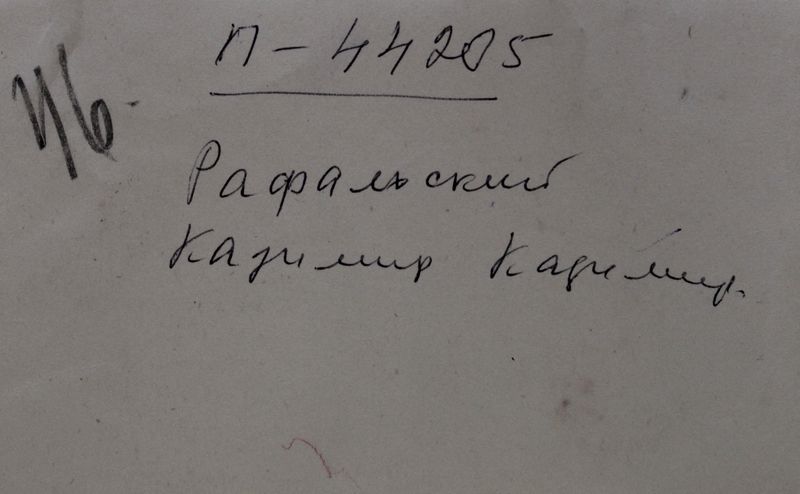 П-44205
46.
Рафальский
Казимир Казимир.